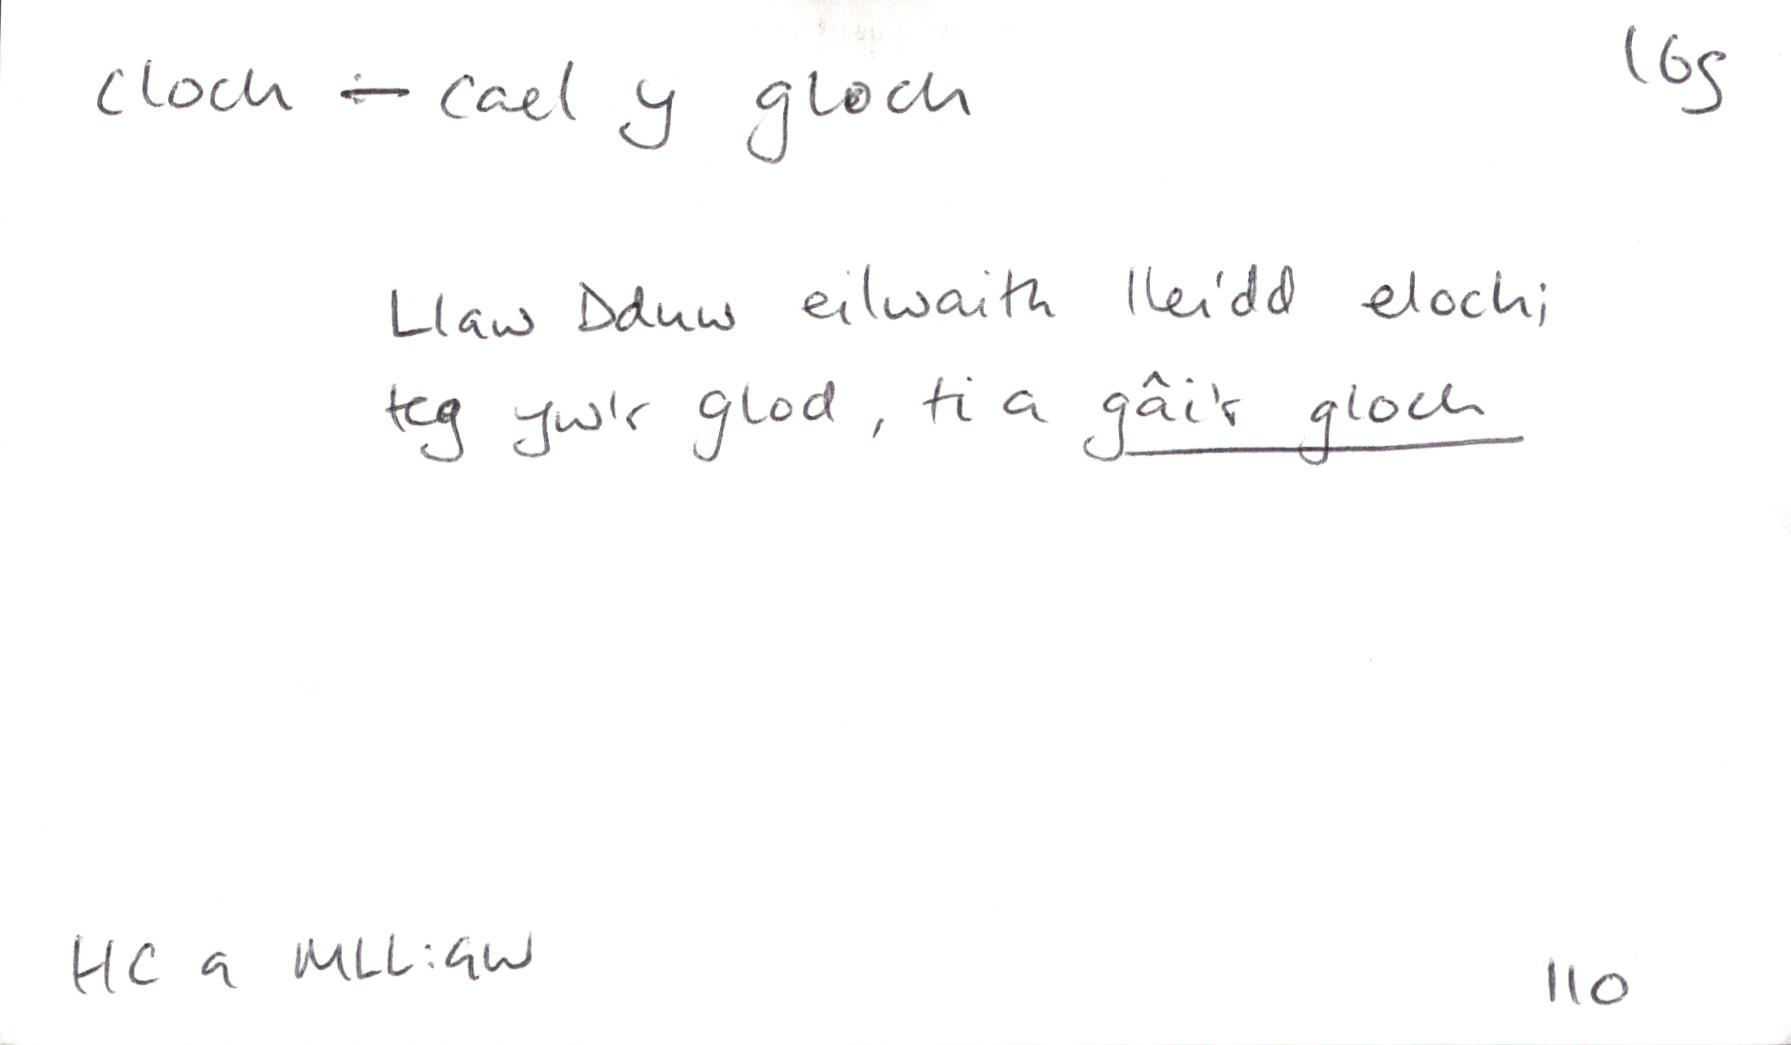 cloch ÷ cael y gloch
16g
Llaw Dduw eilwaith lleidd eloch;
teg yw'r glod, ti a gâi'r gloch
HC a MLL: GW
110